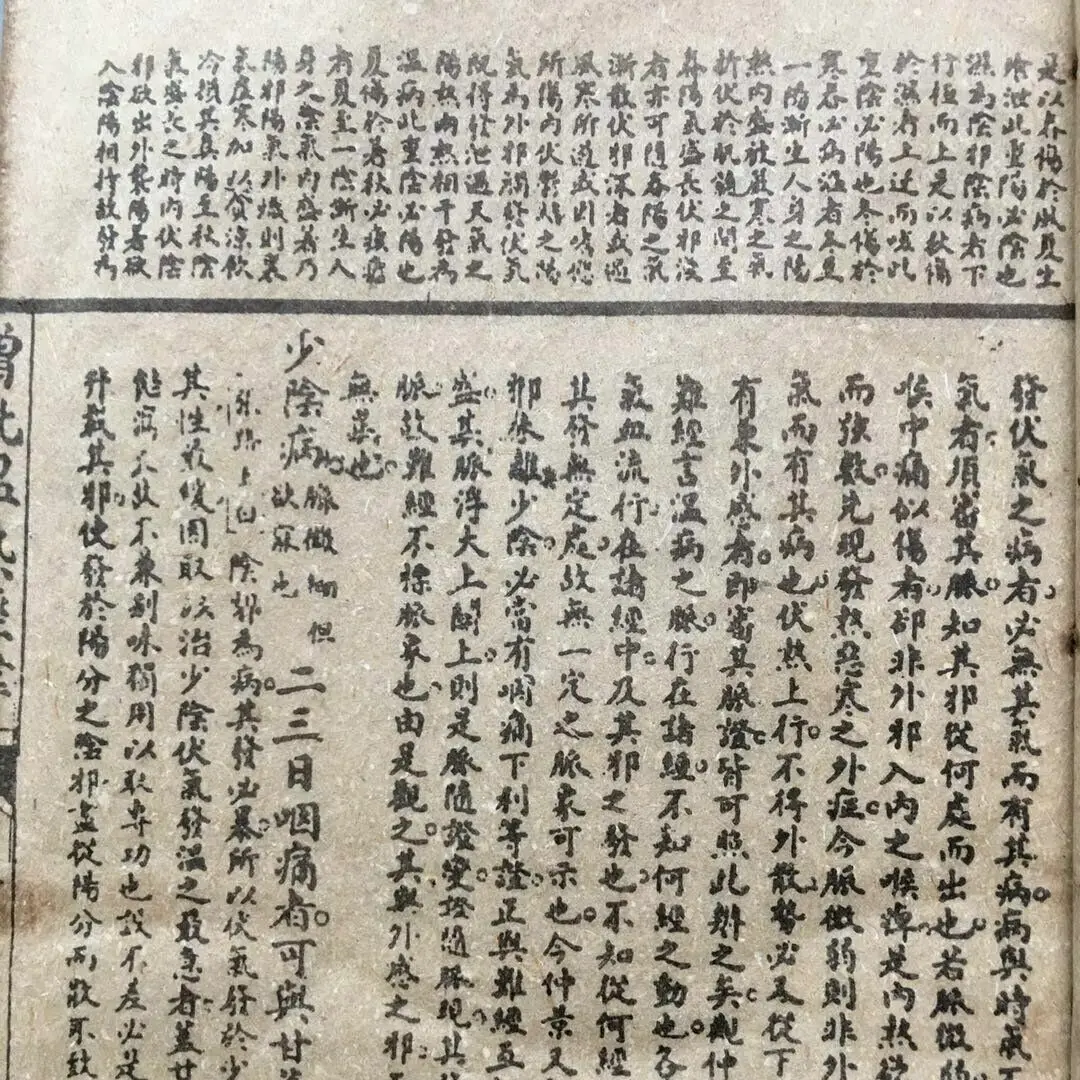 是以春傷於風夏生
飧泄此重陽必陰也
濕為陰邪陰病者下
行極而上是以秋傷
於濕者上逆而咳此
重陰必陽也冬傷於
寒春必病溫者冬至
一陽漸生人身之陽
熱內盛被嚴寒之氣
折伏於肌體之間至
春陽氣盛長伏邪淺
者亦可隨春陽之氣
漸散伏邪深者或遇
風寒所遏或因嗜慾
所傷內伏鬱結之陽
氣為外邪觸發伏氣
既得發泄遇天氣之
陽熱兩熱相干發為
溫病此重陰必陽也
夏傷於暑秋必痎瘧
者夏至一陰漸生人
身之陰氣內盛暑乃
陽邪陽氣外熾則裏
氣虛寒加以貪涼飲
冷損其真陽至秋陰
氣盛長之時內伏陰
邪欲出外襲陽暑欲
入陰陽相持故發為
發伏氣之病者必無其氣而有其病。病與時氣
氣者須審其脈。知其邪從何處而出也。若脈微
喉中痛似傷。有部非外邪入內之喉痺是內熱
而強數。先現發熱惡寒之外症。今脈微弱則非外
氣而有其病也。伏熱上行。不得外散。勢必又從下
有兼外感者。即審其脈證。皆可照此辨之矣。觀仲
難經言溫病之脈。行在諸經不知何經之動也。各
氣血流行。在諸經中。及其邪之發也。不知從何經
其發無定處。故無一定之脈象可示也。今仲景又
邪係離少陰。必當有咽痛下利等證。正與難經互
盛其脈浮大。上關上。則是脈隨證變。證隨脈現。其
脈故難經不據脈象也。由是觀之。其與外感之邪
無異也
少陰病 脈微細但欲寐也 二三日咽痛者。可與甘
上曰陰邪為病。其發必暴。所以伏氣發於少
其性最緩。因取以治少陰伏氣發溫之最急者。蓋甘
能瀉火。故不兼別味。獨用以取專功也。設不差。必是
升載其邪。使發於陽分之陰邪盡從陽分而散。不致